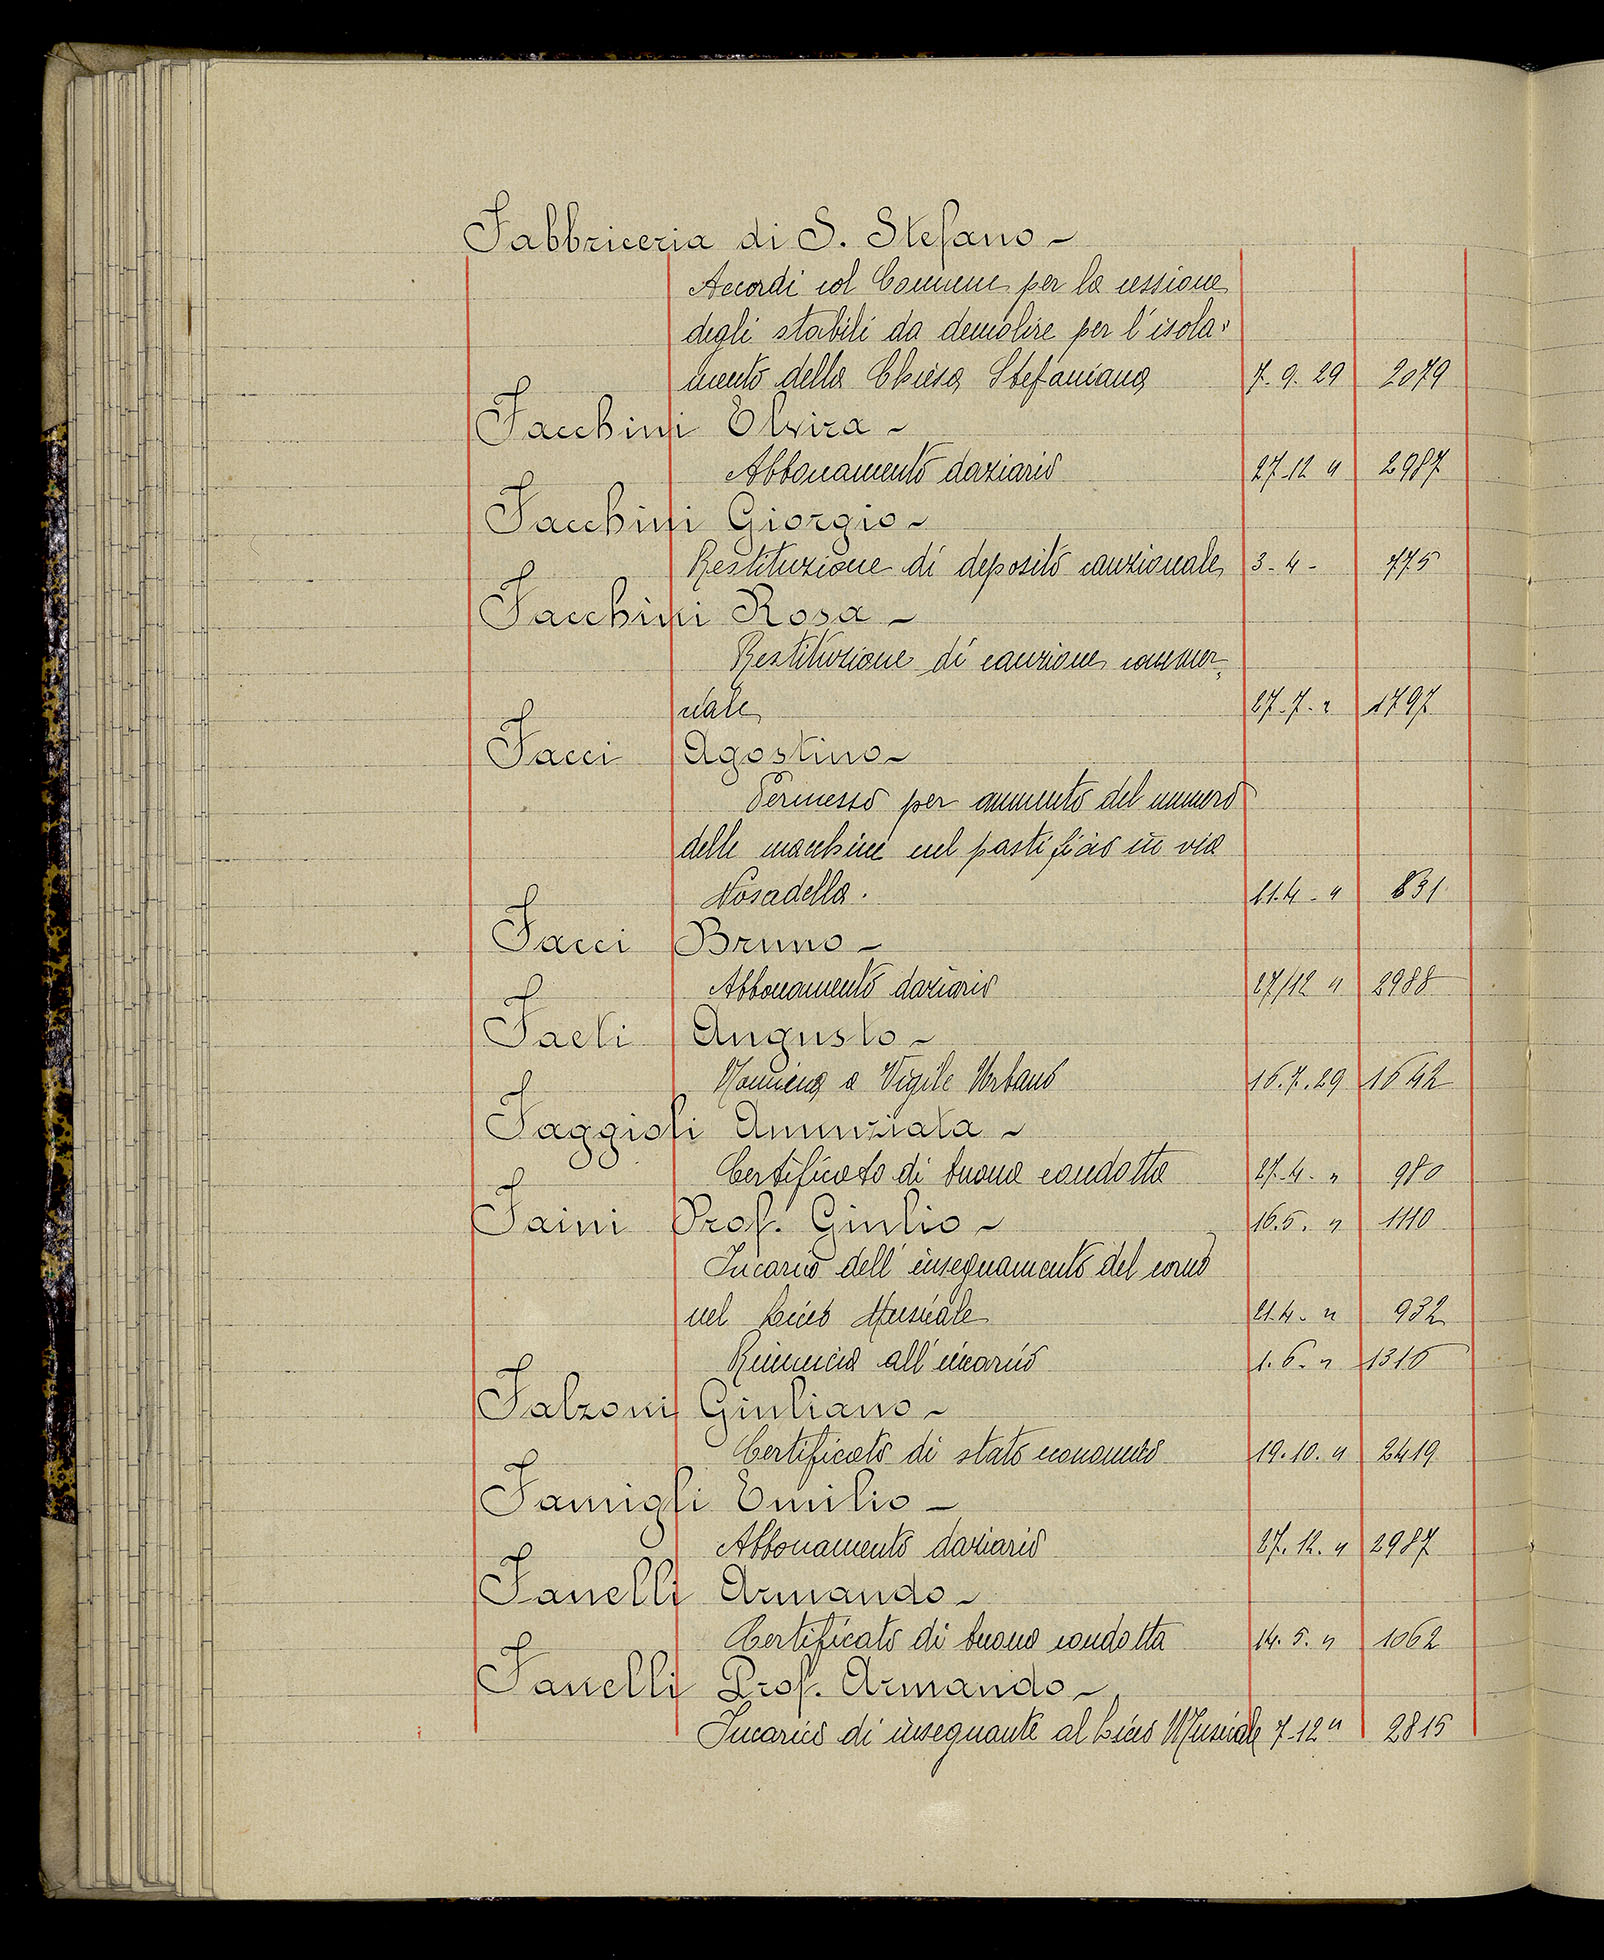 Fabbriceria di S. Stefano –
Accordi col Comune per la cessione
degli stabili da demolire per l'isola-
mento della Chiesa Stefaniana 7. 9. 29 2079
Facchini Elvira –
Abbonamento daziario 27.12 " 2987
Facchini Giorgio –
Restituzione di deposito cauzionale 3 - 4 - 775
Facchini Rosa –
Restituzione di cauzione commer-
ciale 27. 7. " 1797
Facci Agostino –
Permesso per aumento del numero
delle macchine nel pastificio in via
Nosadella. 11.4 - " 831
Facci Bruno –
Abbonamento daziario 27/12 " 2988
Faeti Augusto –
Nomina a Vigile Urbano 16.7.29 1642
Faggioli Annunziata –
Certificato di buona condotta 27.4. " 980
Faini Prof. Giulio – 16.5. " 1110
Incarico dell'insegnamento del corno
nel Liceo Musicale 21.4. " 932
Rinuncia all'incarico 1. 6. " 1316
Falzoni Giuliano –
Certificato di stato economico 19.10. " 2419
Famigli Emilio –
Abbonamento daziario 27.12. " 2987
Fanelli Armando –
Certificato di buona condotta 14. 5. " 1062
Fanelli Prof. Armando –
Incarico di insegnante al Liceo Musicale 7-12 " 2815